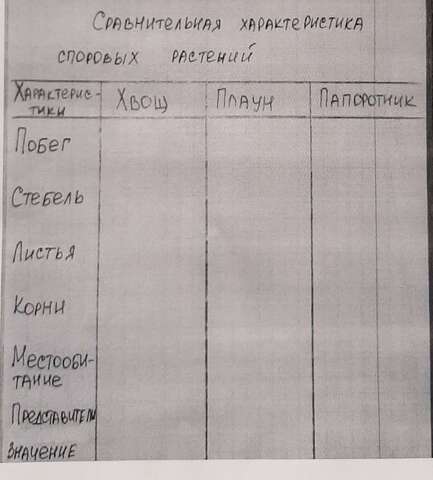 Сравнительная характеристика
споровых растений
Характерис-
тики
Хвощ
Плаун
Папоротник
Побег
Стебель
Листья
Корни
Местооби-
тание
Представители
Значение